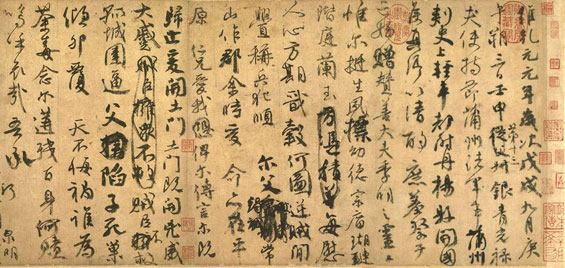 維乾元元年歲次戊戌九月庚
午朔三日壬申第十三從父銀青光祿
夫使持節蒲州諸軍事蒲州
刺史上輕車都尉丹楊縣開國
侯真卿以清酌庶羞祭于
亡姪贈贊善大夫季明之靈曰
惟爾挺生夙標幼德宗廟瑚璉
階庭蘭玉方憑積善每慰
人心方期戩穀何圖逆賊閒
釁稱兵犯順爾父竭誠常
山作郡余時受命亦在平
原仁兄愛我俾爾傳言爾既
歸止爰開土門土門既開凶威
大蹙賊臣擁衆不救賊臣不救
孤城圍逼父陷子死巢
傾卵覆天不悔禍誰為
荼毒念爾遘殘百身何贖
嗚呼哀哉吾承
泉明